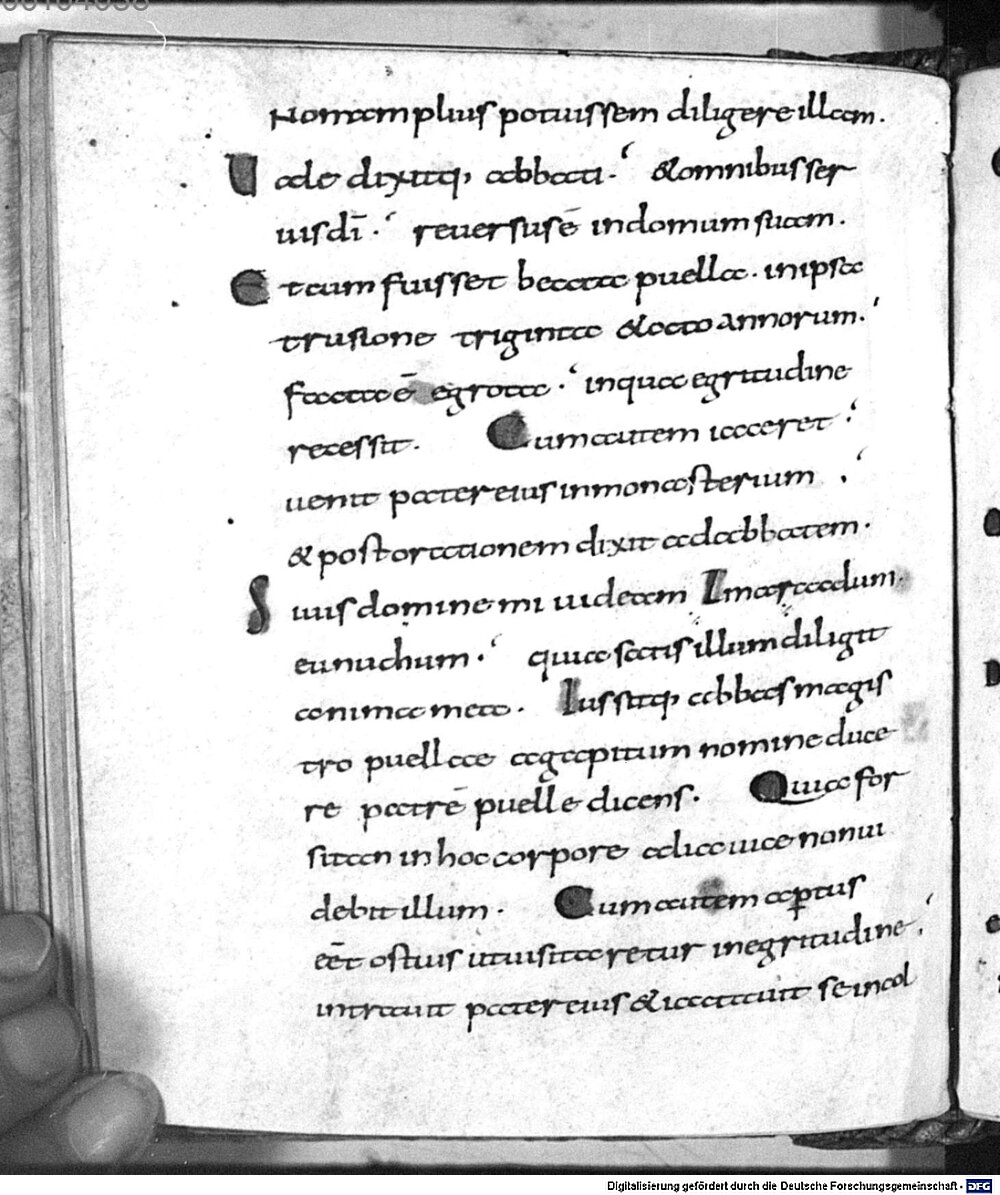 Nontam plius potuissem diligere illam.
Uale dixitq, abbati. &omnibus ser
uis dī. reuersus ē indomum suam.
Et cum fuisset beata puella. inipsa
trusione triginta &octo annorum.
facta ē egrota. inqua egritudine
recessit. Cum autem iaceret
uenit pater eius inmonasterium
& post orationem dixit ad abbatem.
Iuuis domine mi uideam Imaragdum
eunuchum. quia satis illum diligit
anima mea. Iussitq, abbas magis
tro puellae agapitum nomine duce
re patrē puelle dicens. Quia for
sitan in hoc corpore alia uice nonui
debit illum. Cum autem aptus
eēt ostius utuisitaretur inegritudine
intrauit pater eius &iactauit se incol
Digitalisierung gefördert durch die Deutsche Forschungsgemeinschaft - DFG